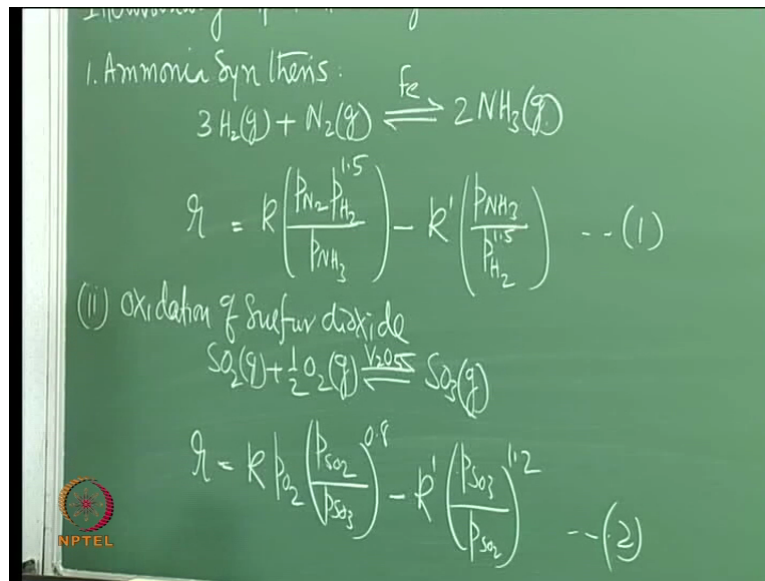 1. Ammonia Synthesis:
3 H₂(g) + N₂(g) ⇌ 2 NH₃(g)
Fe
r = k (p_N₂ p_H₂^1.5 / p_NH₃) − k' (p_NH₃ / p_H₂^1.5) -- (1)
(ii) Oxidation of Sulfur dioxide
SO₂(g) + 1/2 O₂(g) ⇌ SO₃(g)
r = k p_O₂ (p_SO₂ / p_SO₃)^0.8 − k' (p_SO₃ / p_SO₂)^1.2 -- (2)
NPTEL